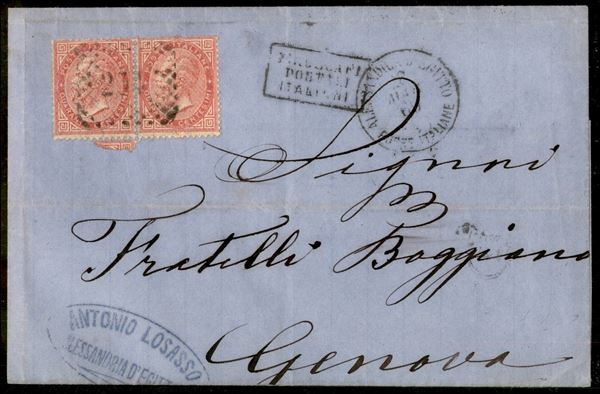 PIROSCAFI
POSTALI
ITALIANI
ALESSANDRIA D'EGITTO
POSTE ITALIANE
Signori
Fratelli Boggiano
Genova
ANTONIO LOSASSO
ALESSANDRIA D'EGITTO